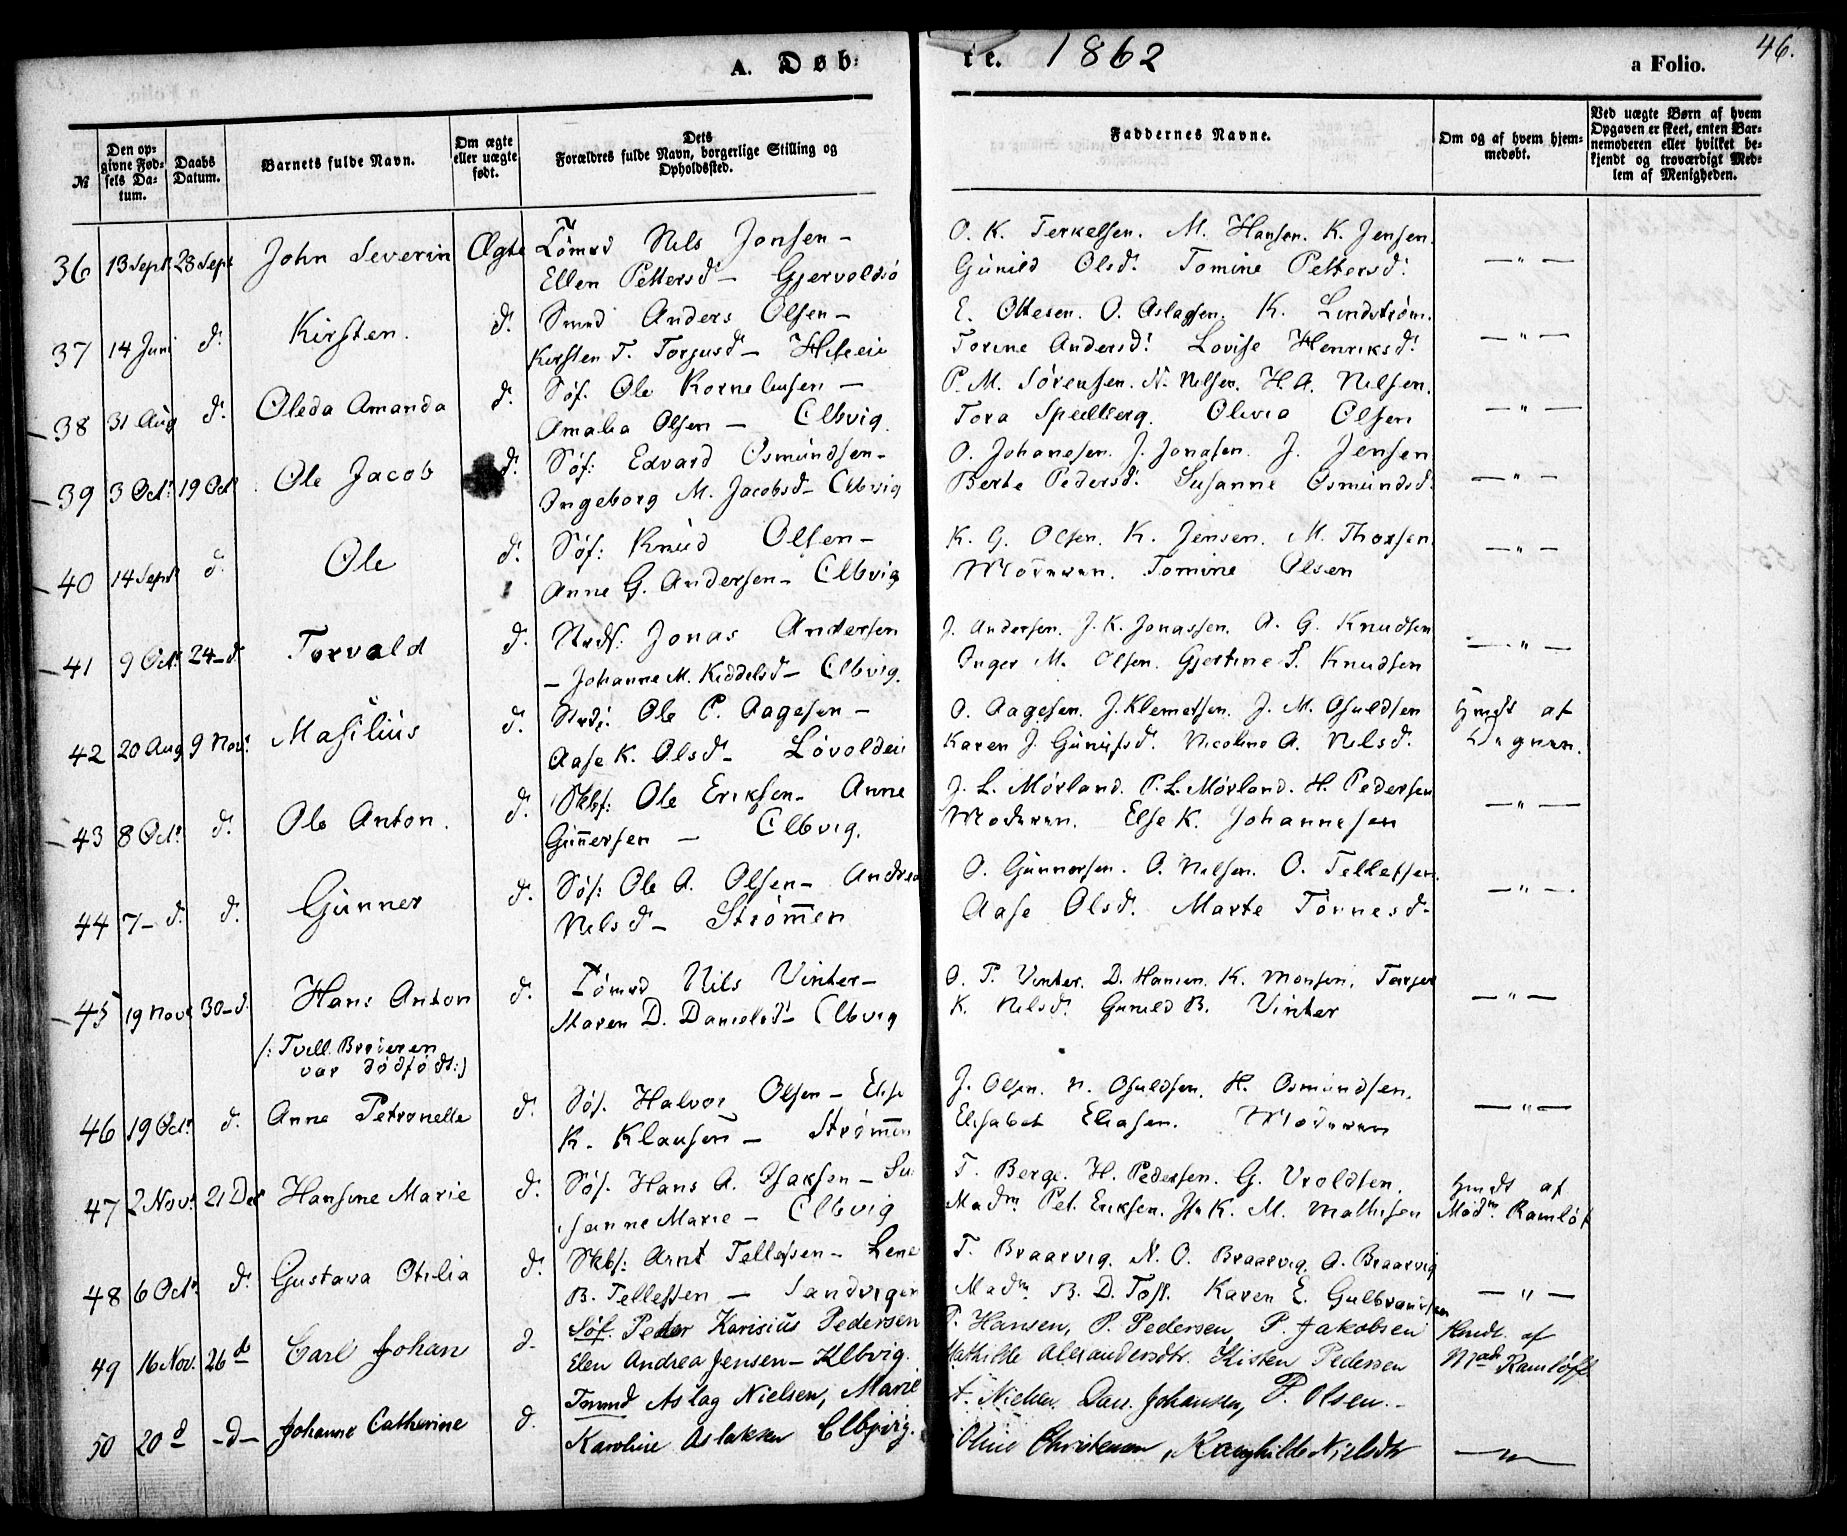 A. Døbte. 1862
a Folio. 46.
№
Den opgivne Fødsels Datum.
Daabs Datum.
Barnets fulde Navn.
Om ægte eller uægte født.
Dets Forældres fulde Navn, borgerlige Stilling og Opholdssted.
Faddernes Navne.
Om og af hvem hjemmedøbt.
Ved uægte Børn af hvem Opgaven er skeet, enten Barnemoderen eller hvilket bekjendt og troværdigt Medlem af Menigheden.
36 13 Sept 28 Sept John Severin Ægte Tømmd Nils Jonsen – O. K. Terkelsen. M. Hansen. K. Jensen. — " —
Ellen Pettersd – Gjervoldsø Gunild Olsd. Tomine Pettersd.
37 14 Juni d. Kirsten. d. Smed Anders Olsen – E. Ottesen. O. Aslagsen. K. Lindstrøm. — " —
Kirsten T. Torjusd – Hiseie Torine Andersd. Lovise Henriksd.
38 31 Aug d. Oleda Amanda d. Søf. Ole Korneliusen – P. M. Sørensen. N. Nilsen. H. A. Nilsen. — " —
Amalia Olsen – Elbvig. Tora Spillberg. Olivia Olsen
39 3 Oct. 19 Oct Ole Jacob d. Søf: Edvard Osmundsen – O. Johanesen. J. Jonasen. J. Jensen — " —
Ingeborg M. Jacobsd – Elbvig Berte Pedersd. Susanne Osmundsd.
40 14 Sept d. Ole d. Søf: Knud Olsen – K. G. Olsen. K. Jensen. M. Thorsen. — " —
Anne G. Andersen – Elbvig Moderen. Tomine Olsen
41 9 Oct. 24 – d. Torvald d. Jonas Andersen J. Andersen. J. K. Jonassen. A. G. Knudsen — " —
– Johanne M. Kiddelsd – Elbvig. Inger M. Olsen. Gjertine S. Knudsen
42 20 Aug 9 Nov. Masilius d. Ole C. Aagesen – O. Aagesen. J. Klemetsen. J. M. Osuldsen Hmdt af
Aase K. Olsd – Løvoldeie Karen J. Gunufsd. Nicoline A. Nilsd.
43 8 Oct. d. Ole Anton. d. Skbf: Ole Eriksen – Anne J. L. Mørland. P. L. Mørland. H. Pedersen — " —
Gunnersen – Elbvig. Moderen. Else K. Johannesen
44 7 – d. d. Gunner d. Søf: Ole A. Olsen – Andrea O. Gunnersen. O. Nilsen. O. Tellefsen. — " —
Nilsd – Strømmen Aase Olsd. Marte Tønnesd.
45 19 Nov. 30 – d. Hans Anton d. Tømmd Nils Vinter – O. T. Vinter. D. Hansen. K. Monsen. Torjer — " —
(: Tvill. Broderen Maren D. Danielsd – Elbvig K. Nilsd. Gunild B. Vinter
var dødfødt :)
46 19 Oct. d. Anne Petronelle d. Søf. Halvor Olsen – Elise J. Olsen. N. Osuldsen. H. Osmundsen. — " —
K. Klausen – Strømmen Elisabet Eliasen. Moderen
47 2 Nov. 21 Dec Hansine Marie d. Søf. Hans A. Isaksen – Su- T. Berge. H. Pedersen. G. Vroldsen. Hmdt af
sanne Marie – Elbvig Madm. Pet. Eriksen. Jfr K. M. Mathisen Madm. Ramløf
48 6 Oct. d. Gustava Otilia d. Skbf: Arnt Tellefsen – Lene T. Braarvig. N. O. Braarvig. A. Braarvig — " —
B. Tellefsen – Sandvigen Madm. B. D. Toft. Karen E. Gulbrandsen
49 16 Nov. 26 d Carl Johan d. Søf. Peder Karisius Pedersen P. Hansen, P. Pedersen, P. Jakobsen Hmdt. af
Elen Andrea Jensen – Elbvig. Mathilde Alexandersdtr. Kisten Pedersen Mad. Ramløff
50 20 d – d – Johanne Cathrine d. Tømmd Aslag Nielsen, Marie A. Nielsen Dan. Johansen, P. Olsen. –
Karoline Aslaksen Elbgvig. Oline Christensen, Ranghilde Nielsdtr — " —